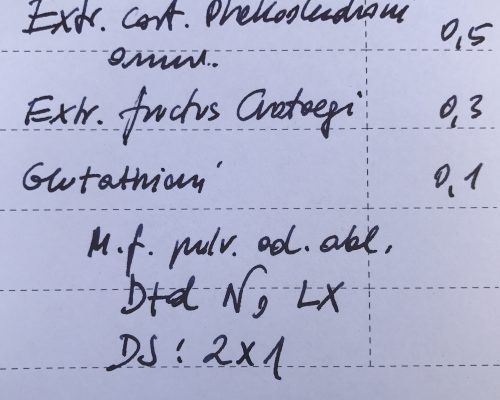 Extr. cort. Phellodendrom 0,5
amur.
Extr. fructus Crataegi 0,3
Glutathioni 0,1
M.f. pulv. ad. abl.
Dtd No LX
DS: 2x1